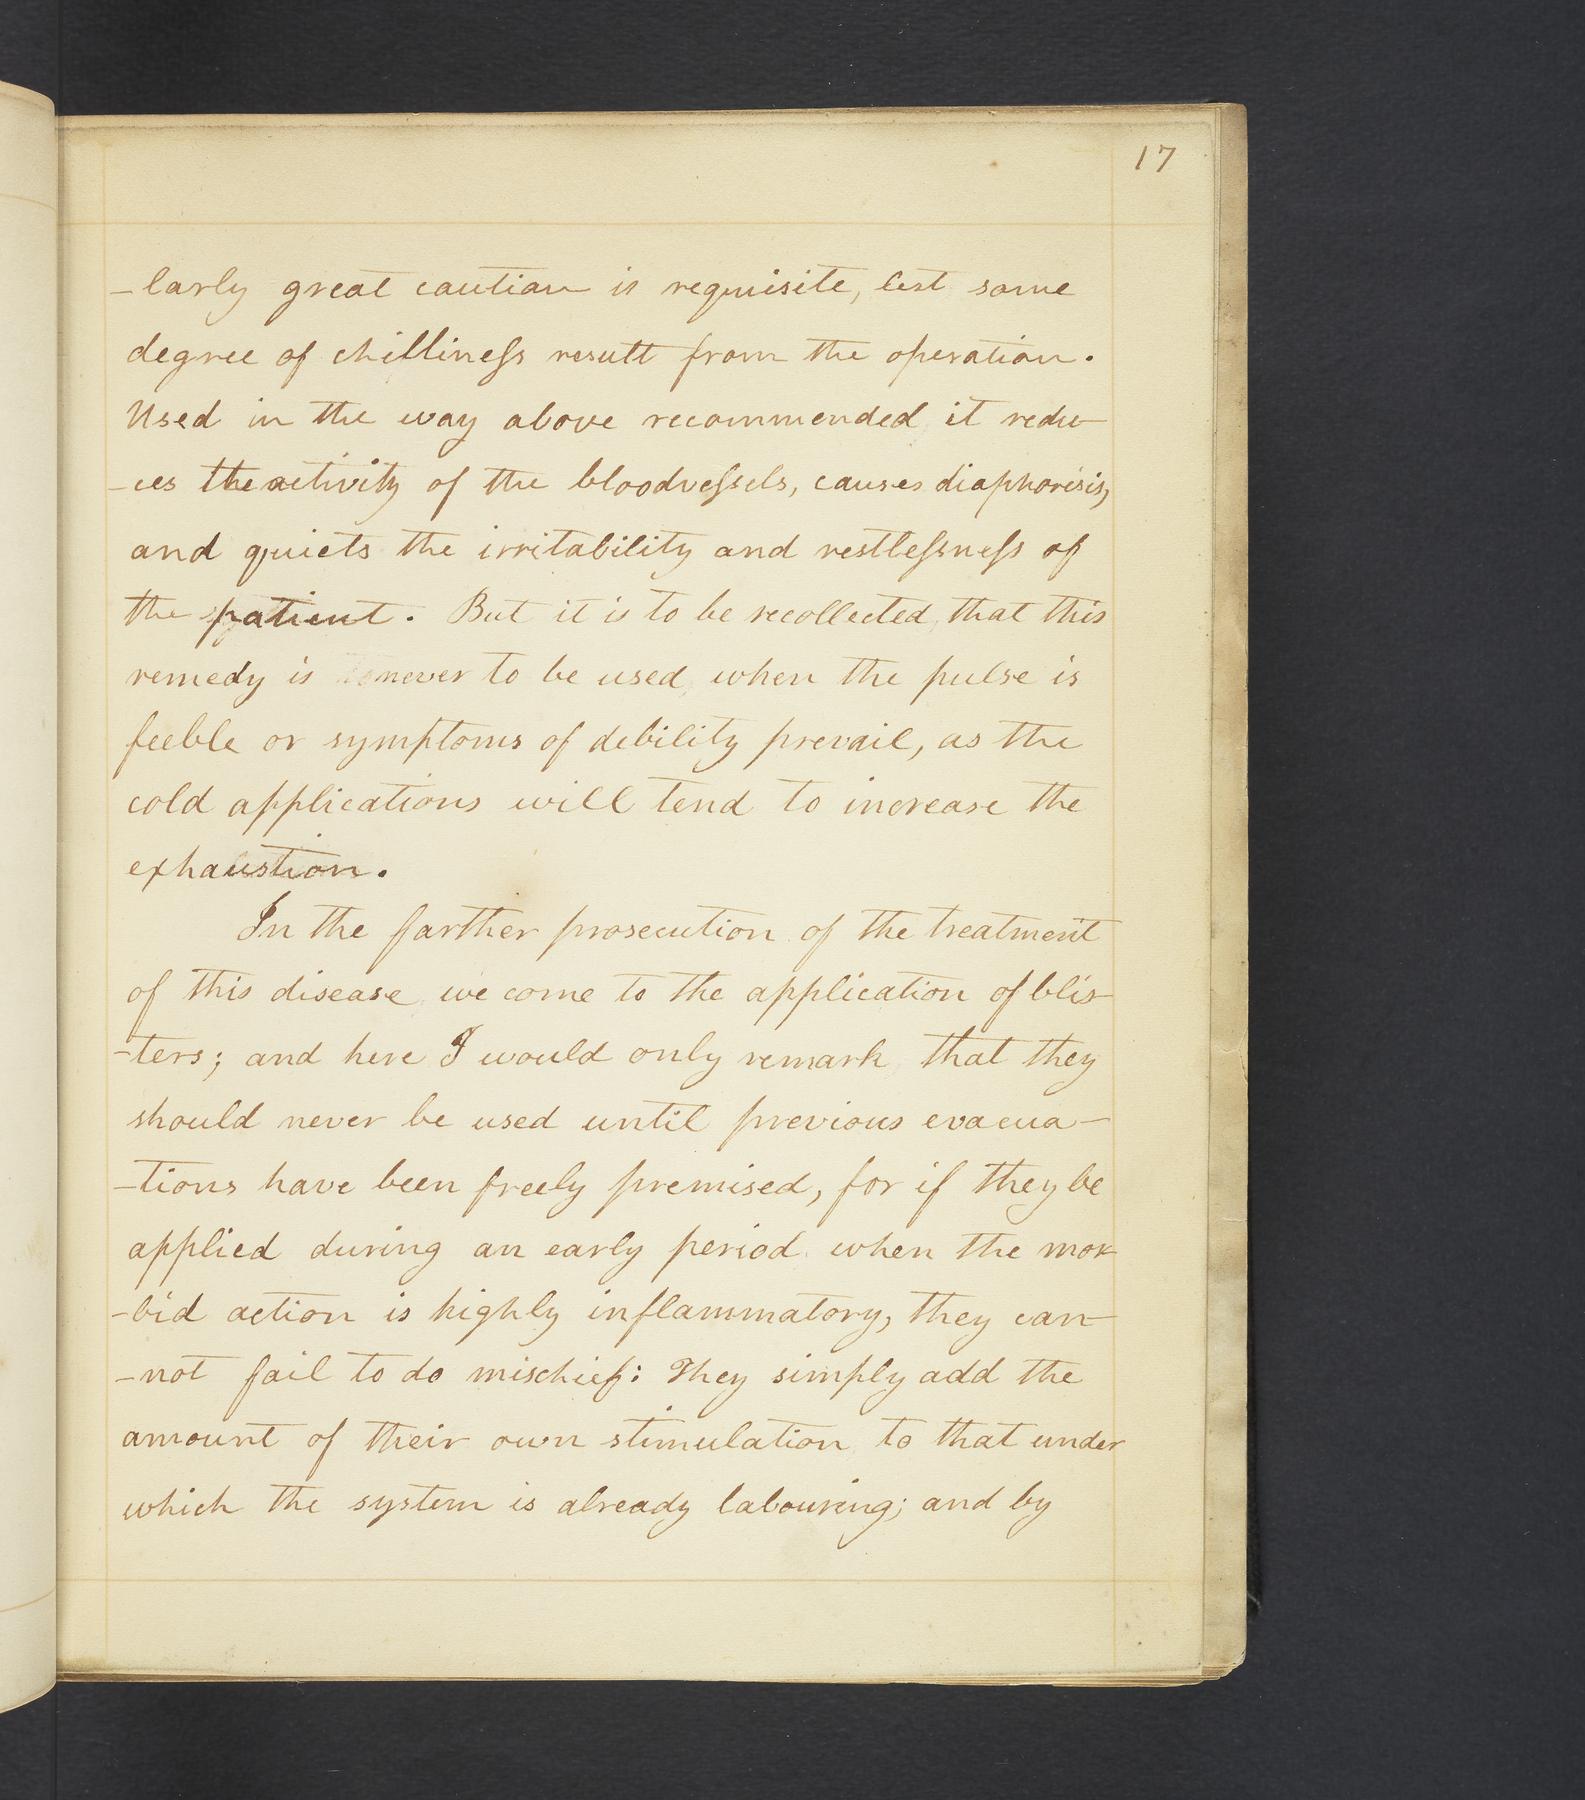 17
-larly great caution is requisite, lest some
degree of chilliness result from the operation.
Used in the way above recommended it redu-
-ces the activity of the bloodvessels, causes diaphorisis,
and quiets the irritability and restlessness of
the patient. But it is to be recollected, that this
remedy is never to be used, when the pulse is
feeble or symptoms of debility prevail, as the
cold applications will tend to increase the
exhaustion.
In the farther prosecution of the treatment
of this disease, we come to the application of blis-
-ters; and here I would only remark, that they
should never be used until previous evacua-
-tions have been freely premised, for if they be
applied during an early period when the mor-
-bid action is highly inflammatory, they can-
-not fail to do mischief: They simply add the
amount of their own stimulation to that under
which the system is already labouring; and by